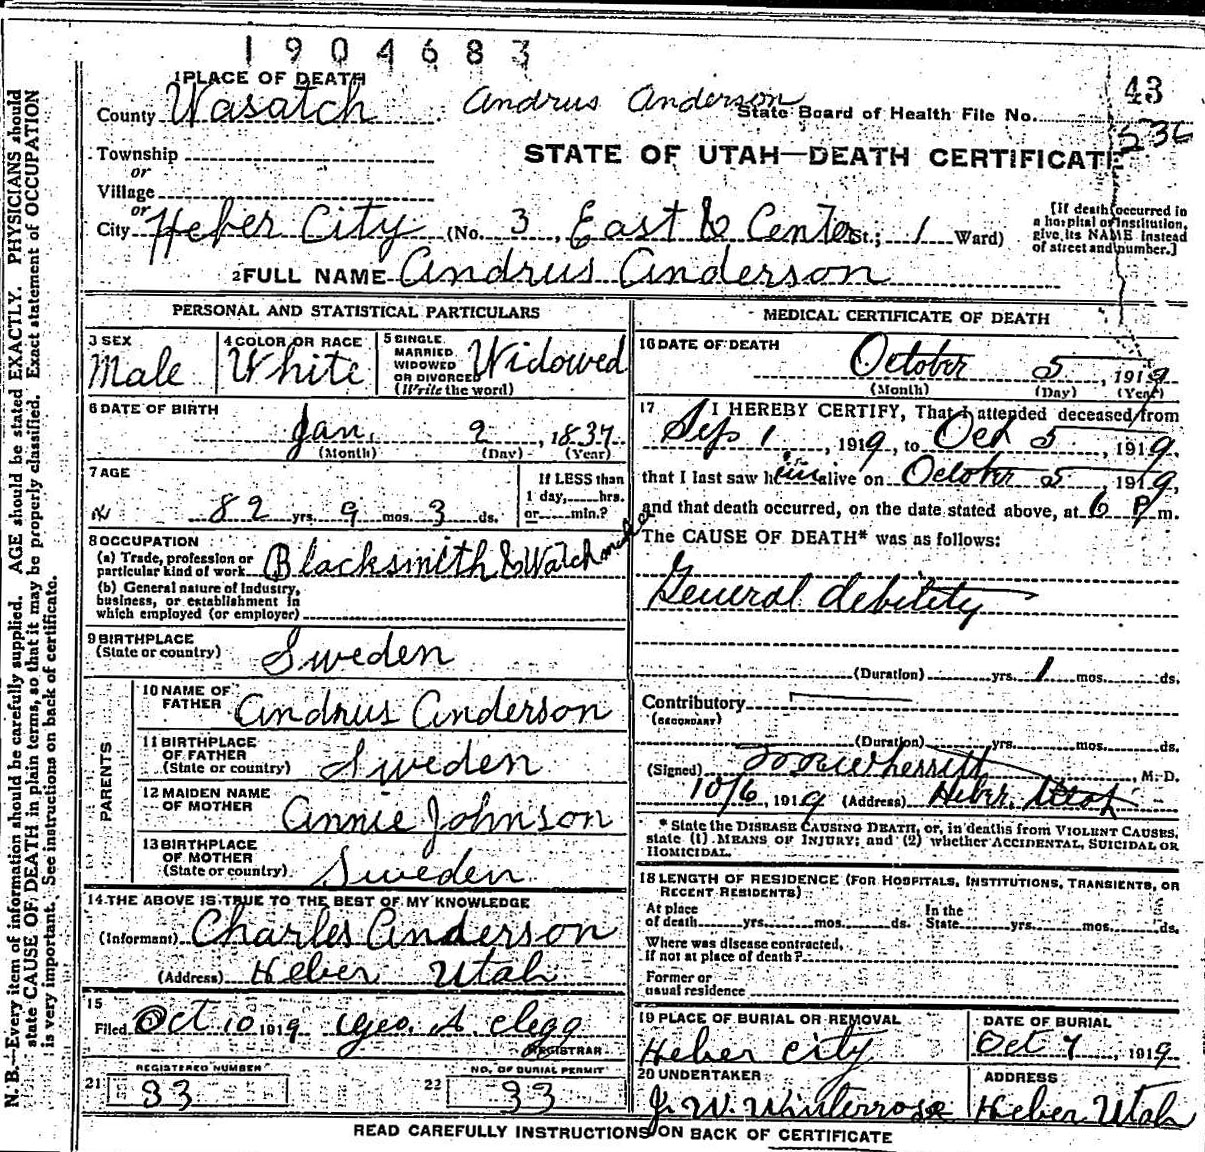 1904683
43
1 PLACE OF DEATH
County Wasatch Andrus Anderson State Board of Health File No.
536
Township
or
Village
or
City Heber City (No. 3, East & Center St.; 1 Ward)
STATE OF UTAH—DEATH CERTIFICATE
[If death occurred in
a hospital or institution,
give its NAME instead
of street and number.]
2 FULL NAME Andrus Anderson
PERSONAL AND STATISTICAL PARTICULARS
3 SEX
Male
4 COLOR OR RACE
White
5 SINGLE
MARRIED
WIDOWED
OR DIVORCED
(Write the word)
Widowed
6 DATE OF BIRTH
Jan. 2, 1837
(Month) (Day) (Year)
7 AGE
82 yrs. 9 mos. 3 ds.
If LESS than
1 day, hrs.
or min.?
8 OCCUPATION
(a) Trade, profession or
particular kind of work Blacksmith & Watchmaker
(b) General nature of industry,
business, or establishment in
which employed (or employer)
9 BIRTHPLACE
(State or country) Sweden
PARENTS
10 NAME OF
FATHER Andrus Anderson
11 BIRTHPLACE
OF FATHER
(State or country) Sweden
12 MAIDEN NAME
OF MOTHER Annie Johnson
13 BIRTHPLACE
OF MOTHER
(State or country) Sweden
14 THE ABOVE IS TRUE TO THE BEST OF MY KNOWLEDGE
(Informant) Charles Anderson
(Address) Heber Utah
15
Filed Oct 10 1919 Geo. A. Clegg
REGISTRAR
REGISTERED NUMBER
21 33
NO. OF BURIAL PERMIT
22 33
MEDICAL CERTIFICATE OF DEATH
16 DATE OF DEATH
October 5, 1919
(Month) (Day) (Year)
17 I HEREBY CERTIFY, That I attended deceased from
Sep 1, 1919, to Oct 5, 1919,
that I last saw him alive on October 5, 1919,
and that death occurred, on the date stated above, at 6 P m.
The CAUSE OF DEATH* was as follows:
General debility
(Duration) yrs. 1 mos. ds.
Contributory
(SECONDARY)
(Duration) yrs. mos. ds.
(Signed) Wherritt, M. D.
10/6, 1919 (Address) Heber, Utah
* State the DISEASE CAUSING DEATH, or, in deaths from VIOLENT CAUSES,
state (1) MEANS OF INJURY; and (2) whether ACCIDENTAL, SUICIDAL OR
HOMICIDAL.
18 LENGTH OF RESIDENCE (FOR HOSPITALS, INSTITUTIONS, TRANSIENTS, OR
RECENT RESIDENTS)
At place
of death yrs. mos. ds.
In the
State yrs. mos. ds.
Where was disease contracted,
if not at place of death?
Former or
usual residence
19 PLACE OF BURIAL OR REMOVAL
Heber City
DATE OF BURIAL
Oct 7, 1919
20 UNDERTAKER
J. W. Winterrose
ADDRESS
Heber Utah
READ CAREFULLY INSTRUCTIONS ON BACK OF CERTIFICATE
N. B.—Every item of information should be carefully supplied. AGE should be stated EXACTLY. PHYSICIANS should
state CAUSE OF DEATH in plain terms, so that it may be properly classified. Exact statement of OCCUPATION
is very important. See instructions on back of certificate.